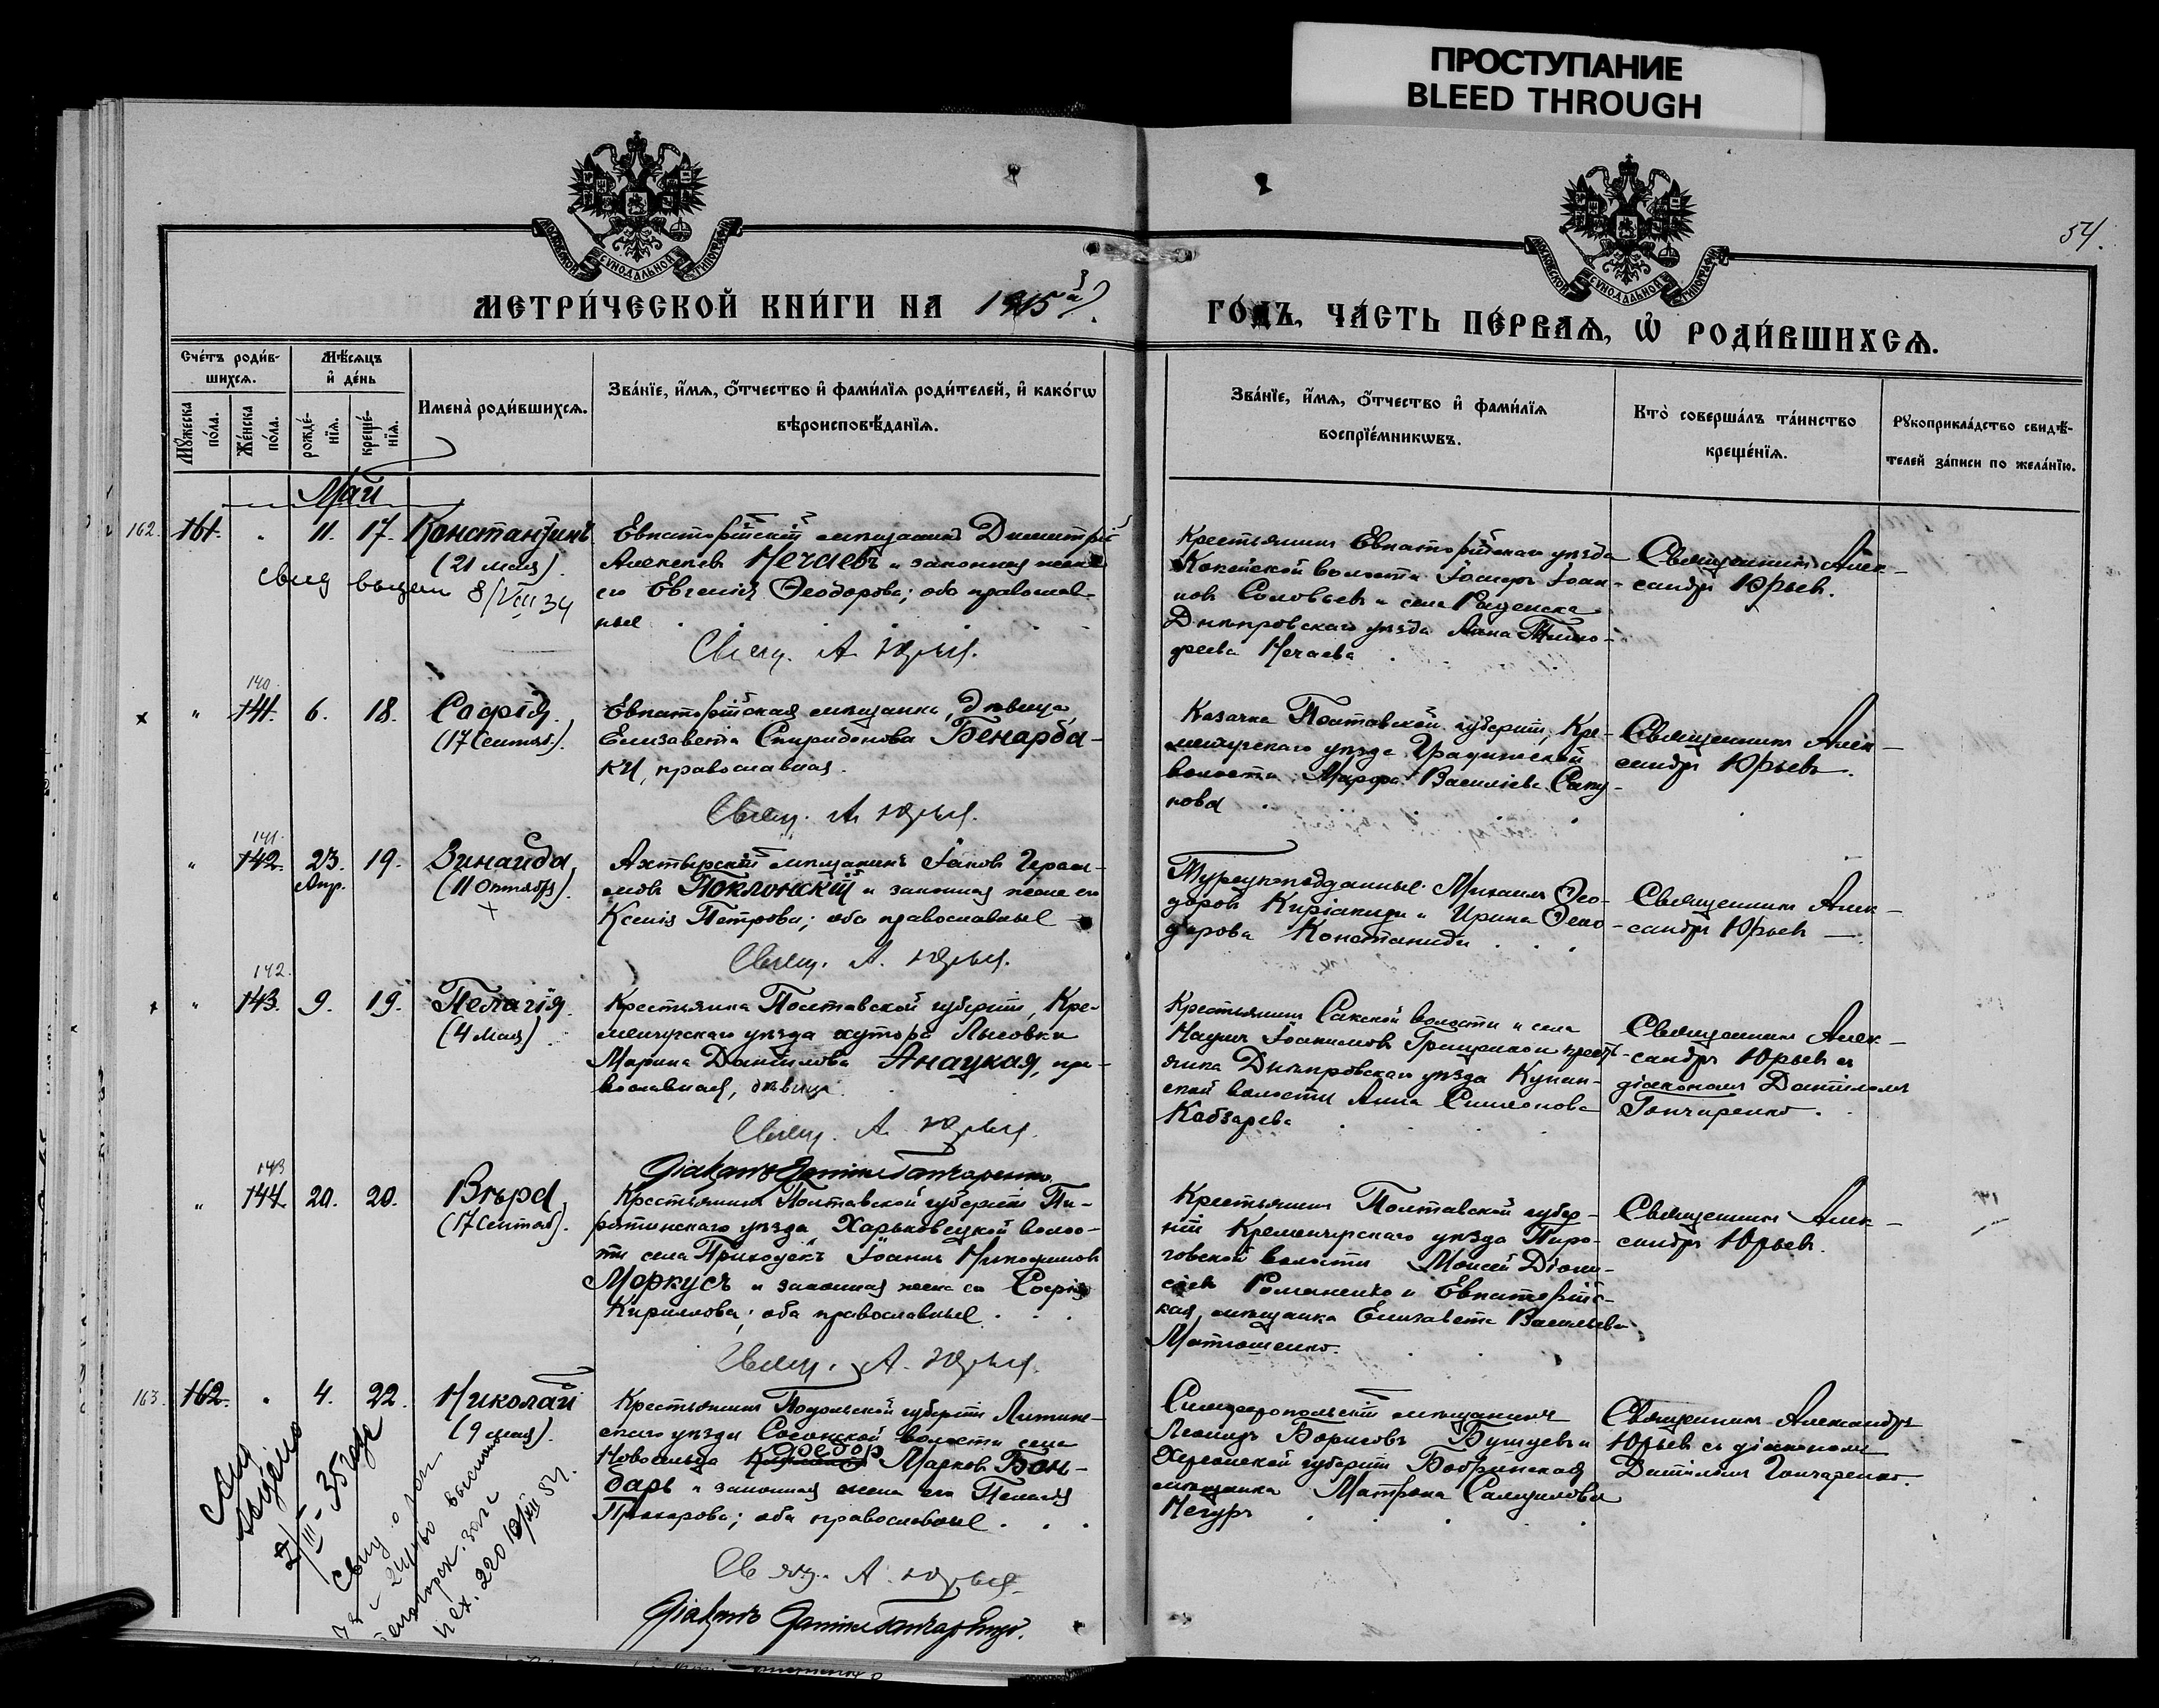 ПРОСТУПАНИЕ
BLEED THROUGH
54.
МОСКОВСКОЙ СѴНОДАЛЬНОЙ ТИПОГРАФІИ
МОСКОВСКОЙ СѴНОДАЛЬНОЙ ТИПОГРАФІИ
МЕТРИ́ЧЕСКОЙ КНИ́ГИ НА 1915й
ГО́ДЪ, ЧА́СТЬ ПЕ́РВАѦ, Ѡ҆ РОДИ́ВШИХСѦ.
Сче́тъ роди́в-
шихсѧ.
Мꙋ́жеска по́ла.
Же́нска по́ла.
Мѣ́сѧцъ
и҆ де́нь
рожде́-
нїѧ.
креще́-
нїѧ.
Имена̀ роди́вшихсѧ.
Зва́нїе, и҆́мѧ, ѻ҆́тчество и҆ фами́лїѧ роди́телей, и҆ како́гѡ
вѣроисповѣ́данїѧ.
Зва́нїе, и҆́мѧ, ѻ҆́тчество и҆ фами́лїѧ
воспрїе́мникѡвъ.
Кто̀ соверша́лъ та́инство
креще́нїѧ.
Рꙋкоприкла́дство свидѣ́-
телей за́писи по жела́нїю.
Май
162. 161. " 11. 17. Константинъ
(21 мая).
свид выдан 8/VIII 34
Евпаторійскій мѣщанинъ Димитрій
Алексѣевъ Нечаевъ и законная жена
его Евгенія Ѳеодорова; оба православ-
ные
Свящ. А Юрьев.
Крестьянинъ Евпаторійскаго уѣзда
волости Іосифъ Іоан-
новъ Соловьевъ и села Раденска
Днѣпровскаго уѣзда Анна Тимо-
феева Нечаева
Священникъ Алек-
сандръ Юрьевъ.
140
" 141. 6. 18. Софія.
(17 Сентяб.).
Евпаторійская мѣщанка, дѣвица
Елизавета Спиридонова Бенарба-
ки, православная.
Свящ. А Юрьев.
Казачка Полтавской губерніи, Кре-
менчугскаго уѣзда Градижской
волости Марфа Василіева Сапу-
нова
Священникъ Алек-
сандръ Юрьевъ.
141.
" 142. 23. 19. Зинаида,
Апр. (11 Октября).
Ахтырскій мѣщанинъ Іаковъ Гераси-
мовъ Поклонскій и законная жена его
Ксенія Петрова; оба православные
Свящ. А. Юрьев.
Турецкоподданные Михаилъ Ѳео-
доровъ Киріакиди и Ирина Ѳео-
дорова Констаниди
Священникъ Алек-
сандръ Юрьевъ
142.
" 143. 9. 19. Пелагія.
(4 мая)
Крестьянка Полтавской губерніи, Кре-
менчугскаго уѣзда хутора Лысовки
Марина Даніилова Анацкая, пра-
вославная, дѣвица.
Свящ. А. Юрьев.
Діаконъ Даніилъ Гончаренко
Крестьянинъ Сакской волости и села
Наумъ Іоакимовъ Грищенко и кресть-
янка Днѣпровскаго уѣзда
ской волости Анна Симеонова
Кобзарева
Священникъ Алек-
сандръ Юрьевъ съ
діакономъ Даніиломъ
Гончаренко.
143
" 144. 20. 20. Вѣра
(17 Сентяб).
Крестьянинъ Полтавской губерніи Пи-
рятинскаго уѣзда Харьковецкой волос-
ти села Приходекъ Іоаннъ Никодимовъ
Моркусъ и законная жена его Софія
Кириллова; оба православные
Свящ. А. Юрьев.
Крестьянинъ Полтавской губер-
ніи Кременчугскаго уѣзда Пиро-
говской волости Моисей Діони-
сіевъ Романенко и Евпаторійс-
кая мѣщанка Елизавета Васильева
Матюшенко.
Священникъ Алек-
сандръ Юрьевъ.
163. 162. " 4. 22. Николай
(9 мая).
Крестьянинъ Подольской губерніи Литин-
скаго уѣзда Сосонской волости села
Федор Марковъ Бон-
дарь и законная жена его Пелагія
Прохорова; оба православные
Свящ. А. Юрьев
Діаконъ Даніилъ Гончаренко.
Симферопольскій мѣщанинъ
Леонидъ Борисовъ и
Херсонской губерніи Бобринская
мѣщанка Матрона Самуилова
Священникъ Александръ
Юрьевъ съ діакономъ
Даніиломъ Гончаренко.
7/III-35 года
свид. о рож
исх. 220 VIII 34.